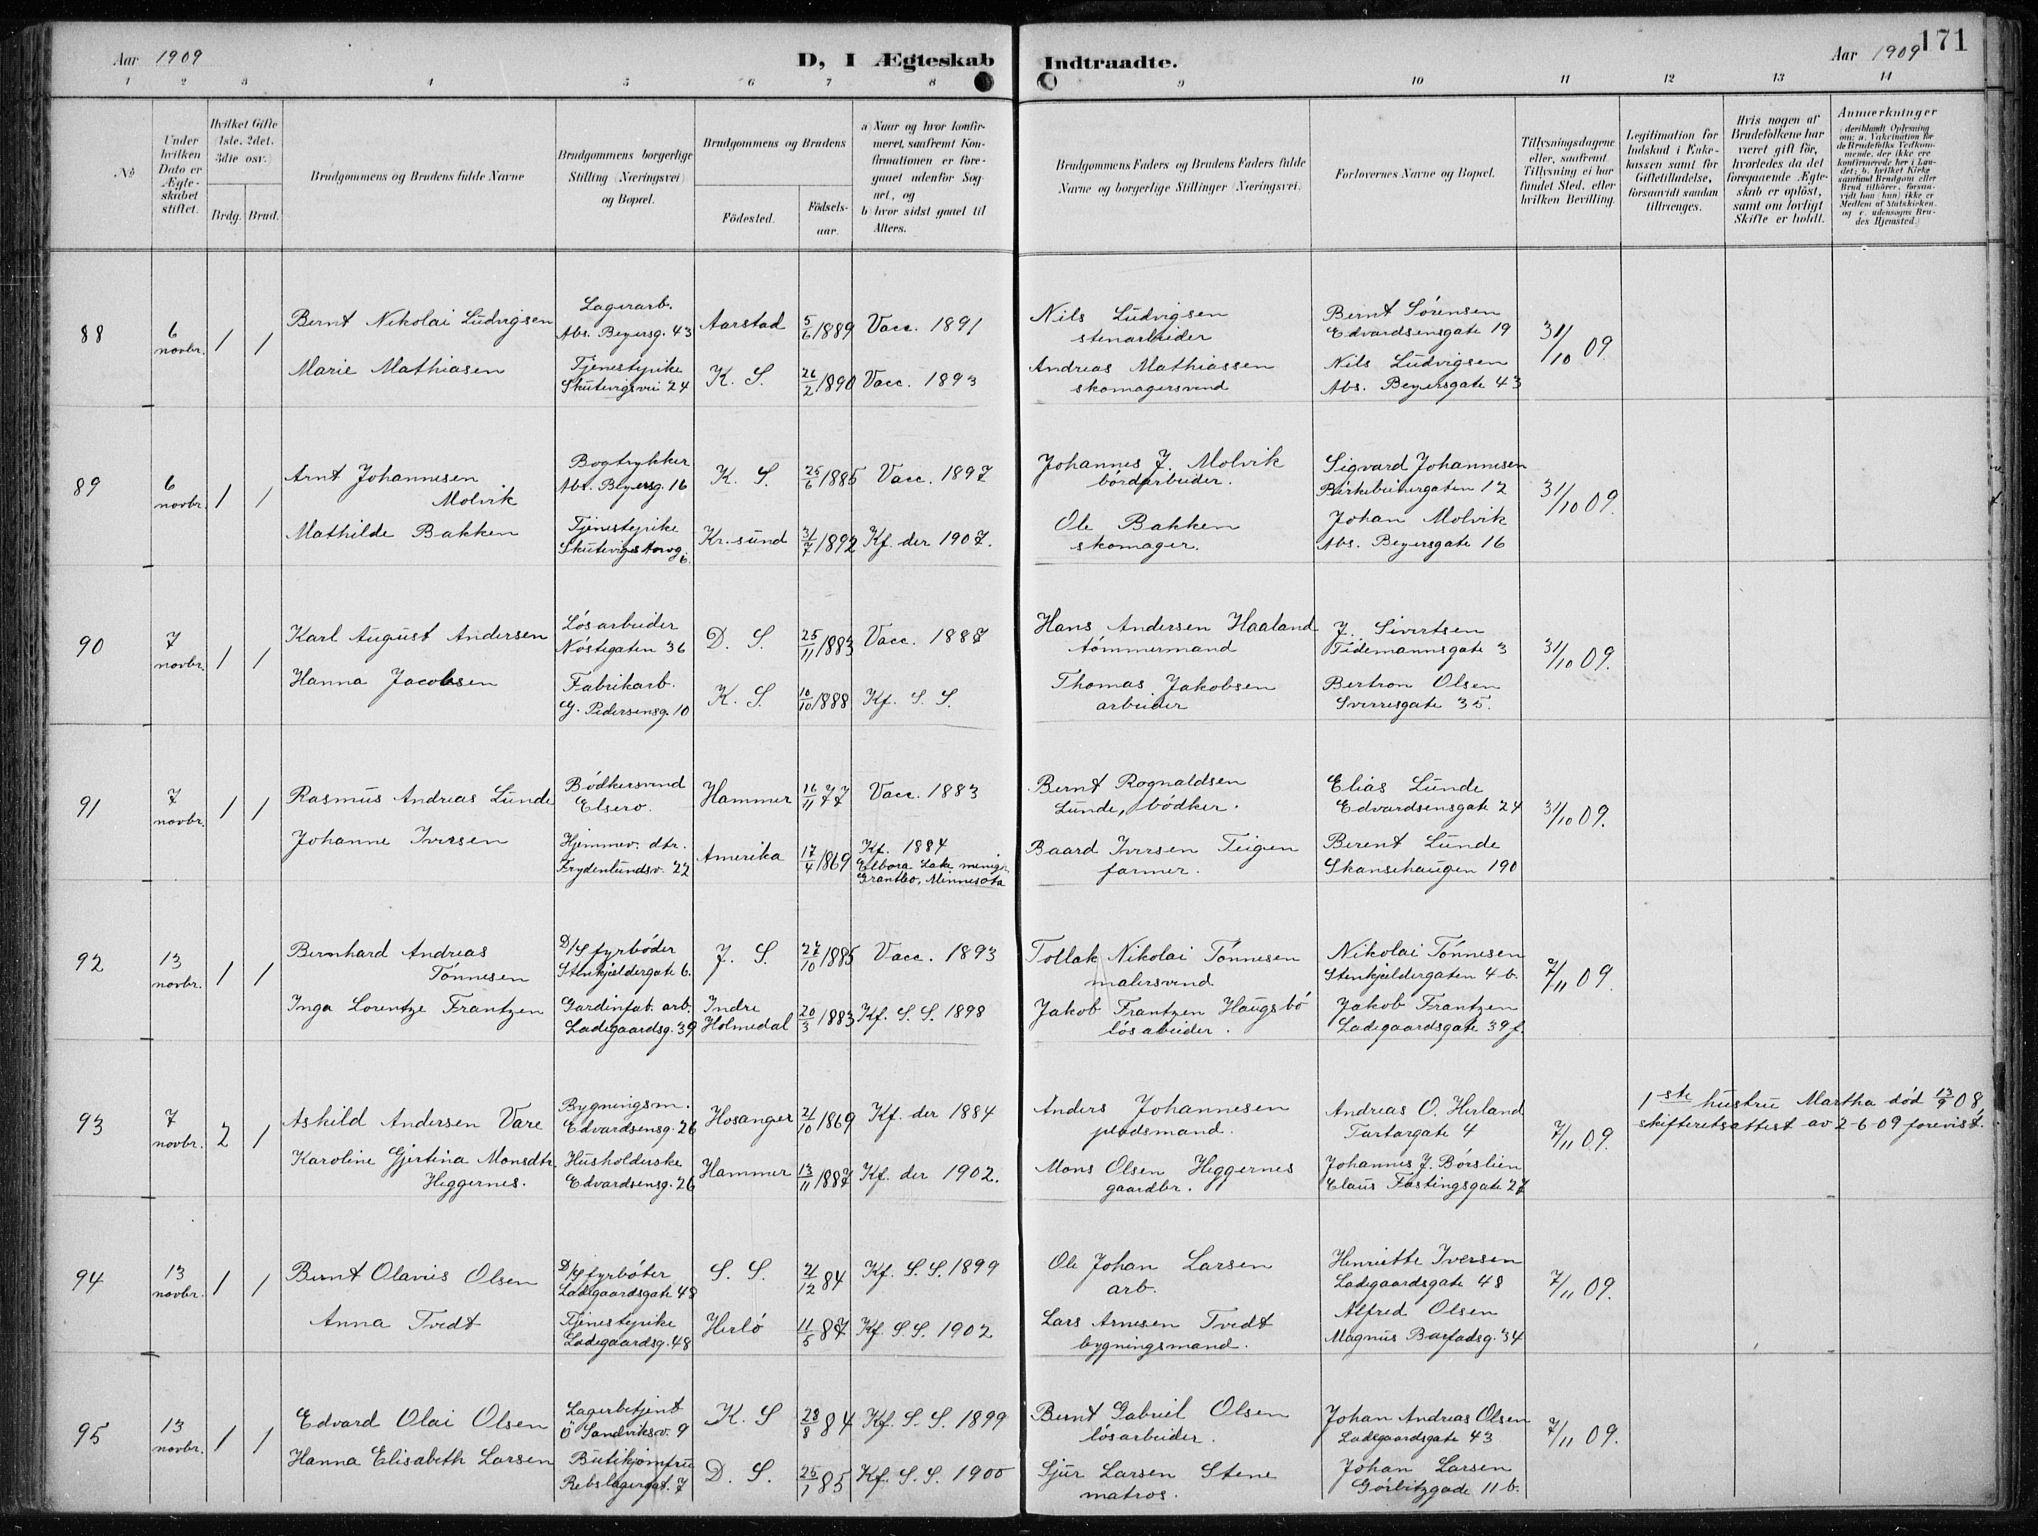 171
Aar 1909
D, I Ægteskab Indtraadte.
Aar 1909
1 2 3 4 5 6 7 8 9 10 11 12 13 14
No
Under hvilken Dato er Ægteskabet stiftet.
Hvilket Gifte (1ste, 2det, 3die osv.)
Brdg. Brud.
Brudgommens og Brudens fulde Navne
Brudgommens borgerlige Stilling (Næringsvei) og Bopæl.
Brudgommens og Brudens
Födested.
Födsels-aar.
a) Naar og hvor konfirmeret, saafremt Konfirmationen er foregaaet udenfor Sognet, og
b) hvor sidst gaaet til Alters.
Brudgommens Faders og Brudens Faders fulde Navne og borgerlige Stillinger (Næringsvei).
Forlovernes Navne og Bopæl.
Tillysningsdagene eller, saafremt Tillysning ei har fundet Sted, efter hvilken Bevilling.
Legitimation for Indskud i Enkekassen samt for Giftetilladelse, forsaavidt saadan tiltrænges.
Hvis nogen af Brudefolkene har været gift før, hvorledes da det foregaaende Ægteskab er opløst, samt om lovligt Skifte er holdt.
Anmærkninger
(deriblandt Oplysning om: a. Vakcination for de Brudefolks Vedkommende, der ikke ere konfirmerede her i Landet; b. hvilket Kirkesamfund Brudgom eller Brud tilhører, forsaavidt han (hun) ikke er Medlem af Statskirken, og c. udensogns Brudes Hjemsted.)
88
6 novbr.
1 1
Bernt Nikolai Ludvigsen
Lagerarb.
Abs. Beyersg. 43
Aarstad
5/6 1889
Vacc. 1891
Nils Ludvigsen
stenarbeider
Bernt Sørensen
Edvardsensgate 19
31/10 09
Marie Mathiasen
Tjenestepike
Skutevigsvei 24
K. S.
26/2 1890
Vacc. 1893
Andreas Mathiassen
skomagersvend
Nils Ludvigsen
Abs. Beyersgate 43
89
6 novbr.
1 1
Arnt Johannesen
Molvik
Bogtrykker
Abs. Beyersg. 16
K. S.
25/6 1885
Vacc. 1897
Johannes J. Molvik
bordarbeider.
Sigvard Johannesen
Birkebeinergaten 12
31/10 09.
Mathilde Bakken
Tjenestepike
Skutevigs torvg. 6
Kr.sund
31/7 1892
Kf. der 1907.
Ole Bakken
skomager.
Johan Molvik
Abs. Beyersgate 16
90
7 novbr.
1 1
Karl August Andersen
Løsarbeider
Nöstegaten 36
D. S.
25/11 1883
Vacc. 1887
Hans Andersen Haaland
tömmermand
J. Sivertsen
Tidemannsgate 3
31/10 09.
Hanna Jacobsen
Fabrikarb.
G. Pedersensg. 10
K. S.
10/10 1888
Kf. S. S.
Thomas Jakobsen
arbeider
Bertron Olsen
Sverresgate 35.
91
7 novbr.
1 1
Rasmus Andreas Lunde
Bödkersvend
Elsero.
Hammer
16/11 77
Vacc. 1883
Bernt Rognaldsen
Lunde, bödker.
Elias Lunde
Edvardsensgate 24
31/10 09.
Johanne Iversen
Hjemmev. dtr.
Frydenlundsv. 22
Amerika
17/4 1869
Kf. 1884
Elbora Lake menig.
Grantbo, Minnesota
Baard Iversen Teigen
farmer.
Berent Lunde
Skansehaugen 190
92
13 novbr.
1 1
Bernhard Andreas
Tönnesen
D/S fyrböder
Stenkjeldergate 6.
J. S.
27/10 1885
Vacc. 1893
Tollak Nikolai Tönnesen
malersvend
Nikolai Tönnesen
Stenkjeldergaten 4 b.
7/11 09.
Inga Lorentze Frantzen
Gardinfab. arb.
Ladegaardsg. 39
Indre Holmedal
20/3 1883
Kf. S. S. 1898
Jakob Frantzen Haugsbö
lösabeider.
Jakob Frantzen
Ladegaardsgate 39 f.
93
7 novbr.
2 1
Askild Andersen Vare
Bygningsm.
Edvardsensg. 26
Hosanger
21/10 1869
Kf. der 1884
Anders Johannesen
pladsmand.
Andreas O. Herland
Tartargate 4
7/11 09.
1ste hustru Martha död 13/9 08
skifteretsattest av 2-6-09 forevist.
Karoline Gjertina Monsdtr.
Heggernes.
Husholderske
Edvardsensg. 26
Hammer
13/11 1887
Kf. der 1902.
Mons Olsen Heggernes
gaardbr.
Johannes J. Börslien
Claus Fastingsgate 27
94
13 novbr.
1 1
Bernt Olavus Olsen
D/S fyrböter
Ladegaardsgate 48
S. S.
21/12 84
Kf. S. S. 1899
Ole Johan Larsen
arb.
Henriette Iversen
Ladegaardsgate 48
7/11 09.
Anna Tvedt
Tjenestepike
Ladegaardsg. 48
Herlö
11/5 87
Kf. S. S. 1902
Lars Arnesen Tvedt
bygningsmand.
Alfred Olsen
Magnus Barfodsg. 34
95
13 novbr.
1 1
Edvard Olai Olsen
Lagerbetjent
Ö Sandviksv. 9
K. S
28/8 84
Kf. S. S. 1899
Bernt Gabriel Olsen
lösarbeider.
Johan Andreas Olsen
Ladegaardsgate 43
7/11 09.
Hanna Elisabeth Larsen
Butikjomfru
Rebslagergat. 7
D. S.
25/1 85
Kf. S. S. 1900
Sjur Larsen Stene
matros.
Johan Larsen
Görbitzgade 11 b.